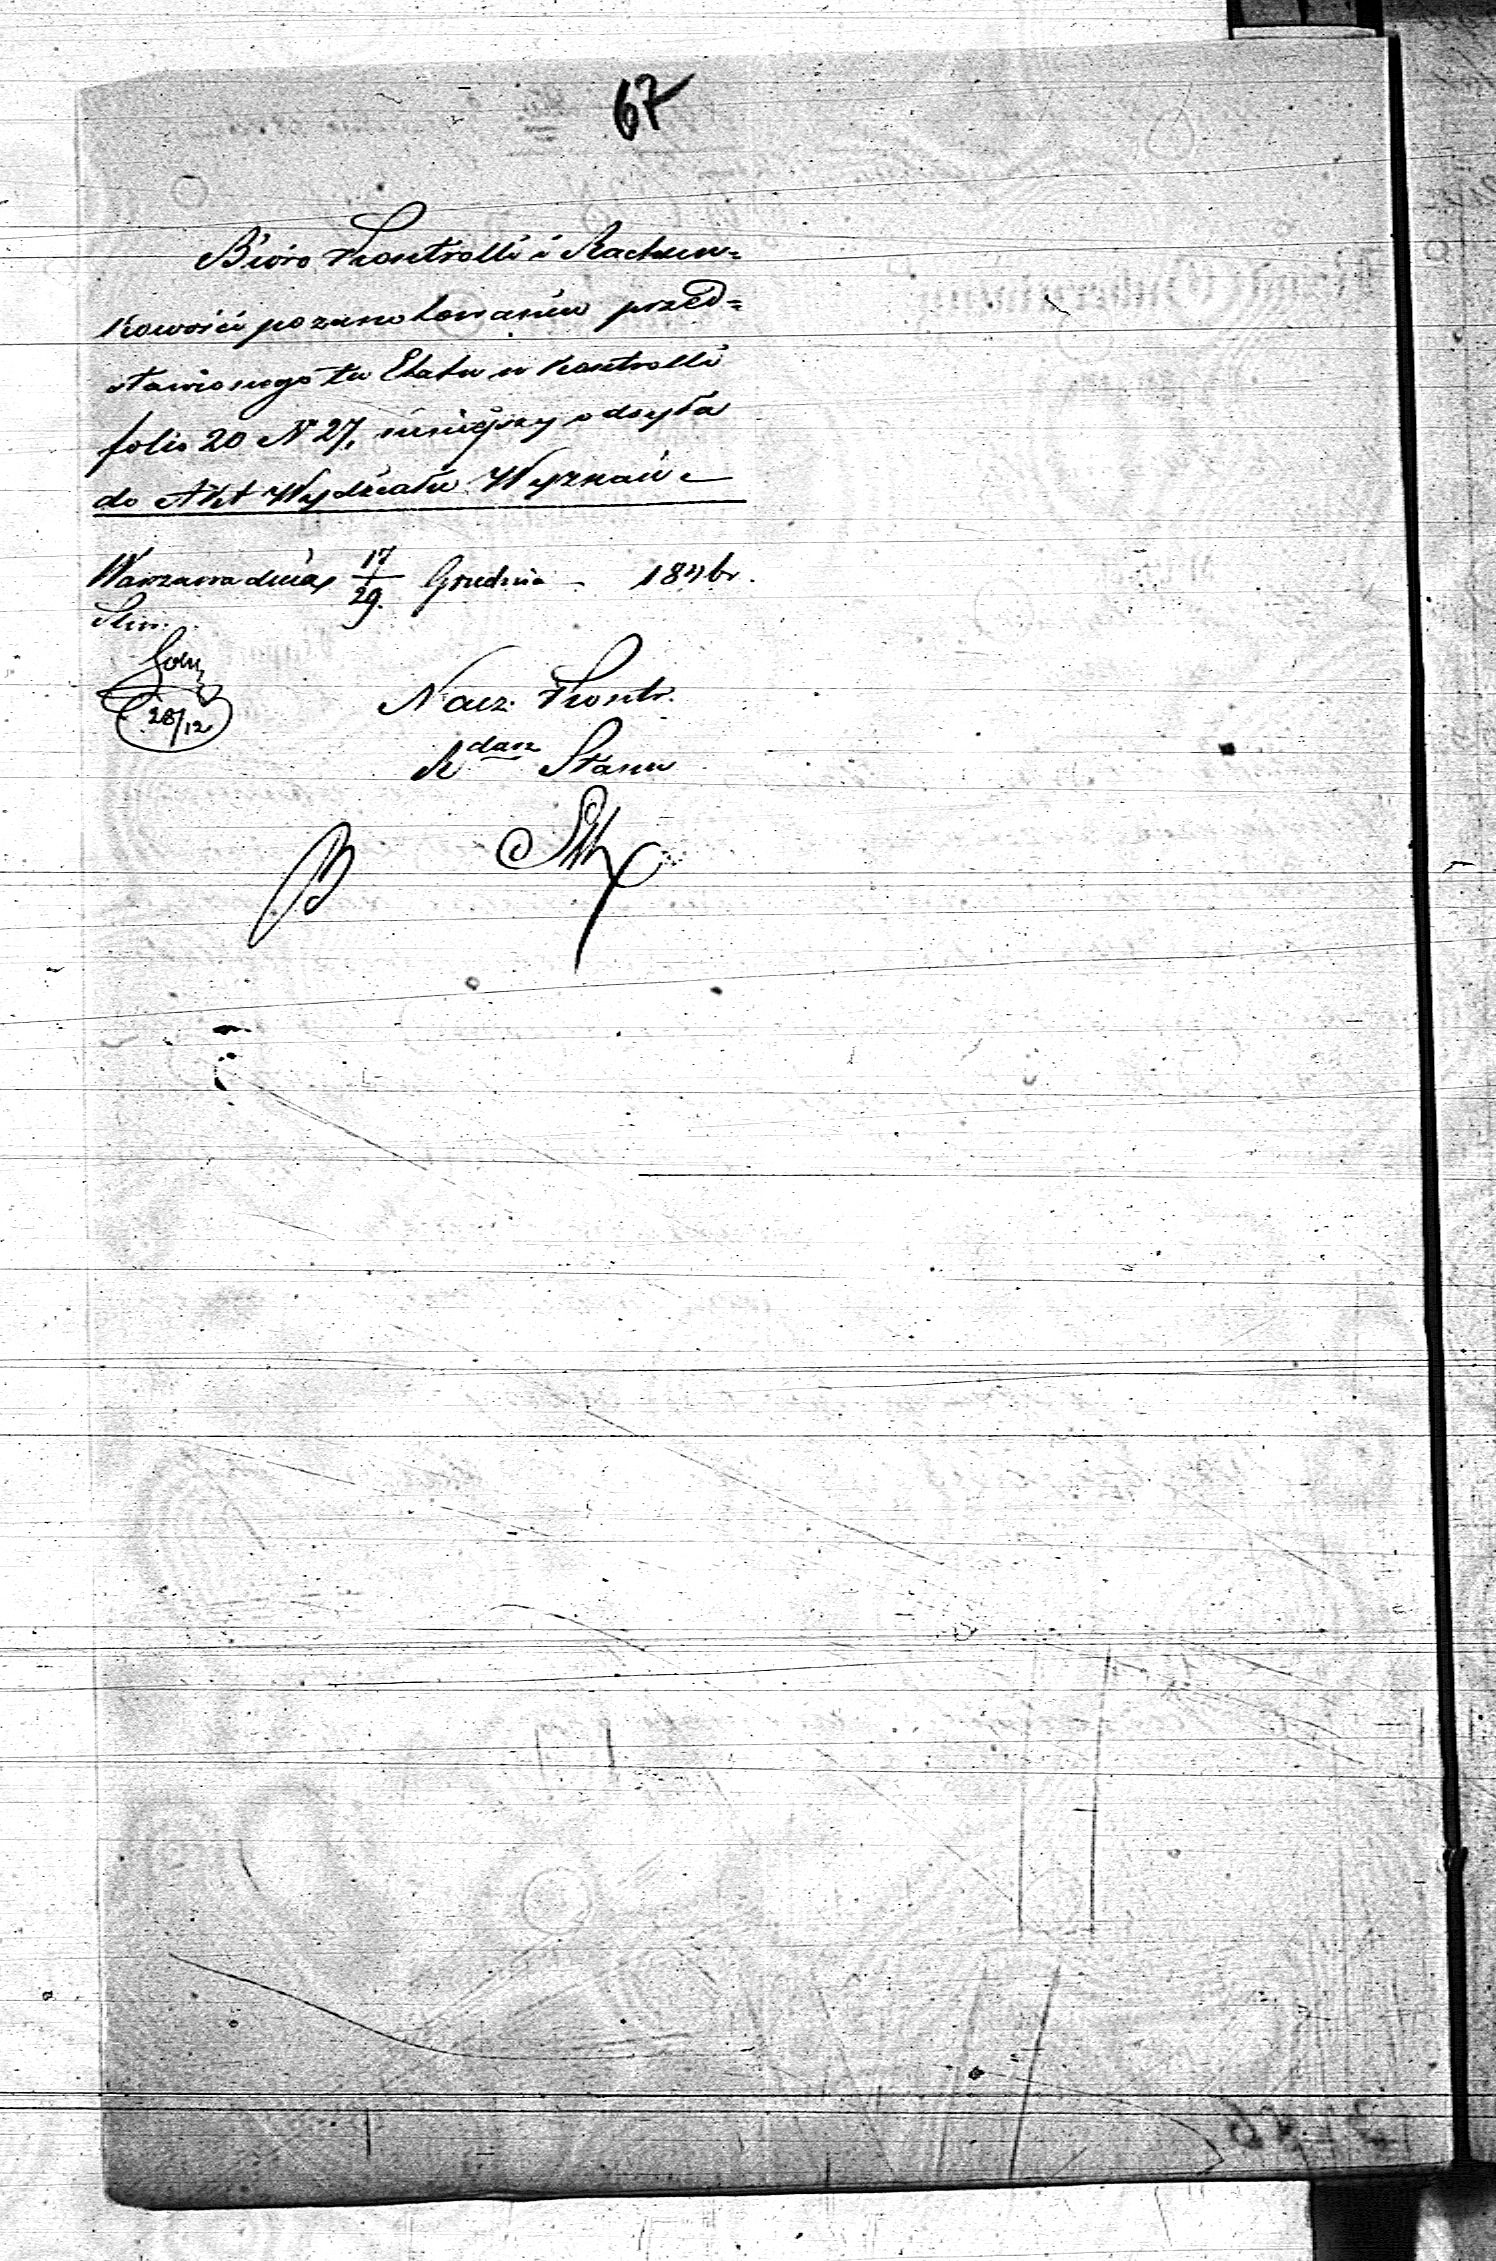 67
Bióro Kontrolli i Rachun=
kowości po zanotowaniu przed=
stawionego tu Etatu w Kontrolli
folio 20 N 27, niniejszy odsyła
do Akt Wydziału Wyznań
Warszawa dnia 17/29. Grudnia 1846 r.
28/12
Nacz. Kontr.
Rdarz Stanu